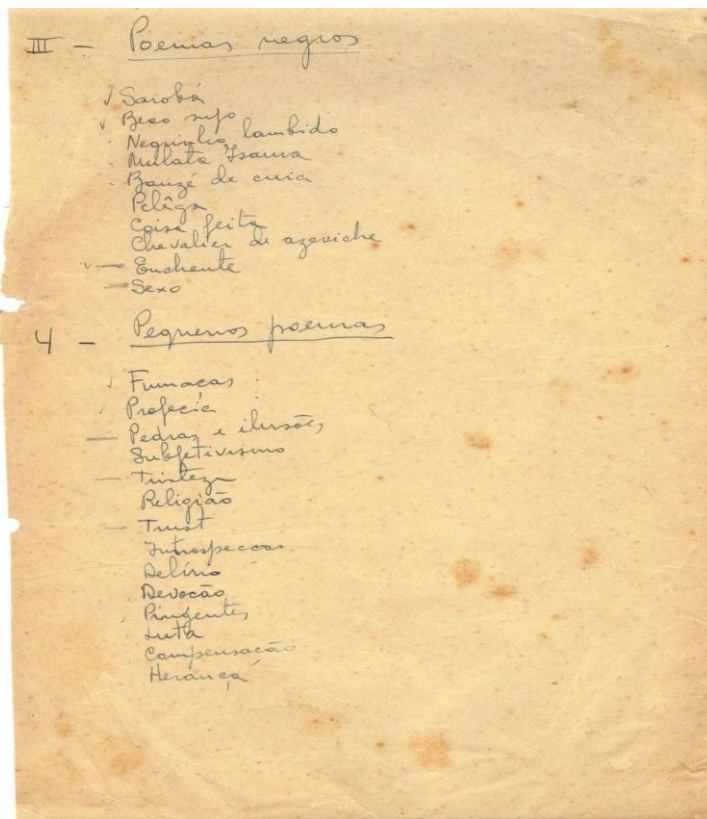 III - Poemas negros
√ Sarobá
√ Beco sujo
Neguinho lambido
Mulata Isaura
Banzé de cuia
Pelêga
Coisa feita
Chevalier de azeviche
√ — Enchente
— Sexo
4 - Pequenos poemas
√ Fumaças
√ Profecia
— Pedras e ilusões
Subjetivismo
— Tristeza
Religião
— Trust
Introspeccao
Delírio
Devocão
Pingentes
Luta
Compensacão
Herança